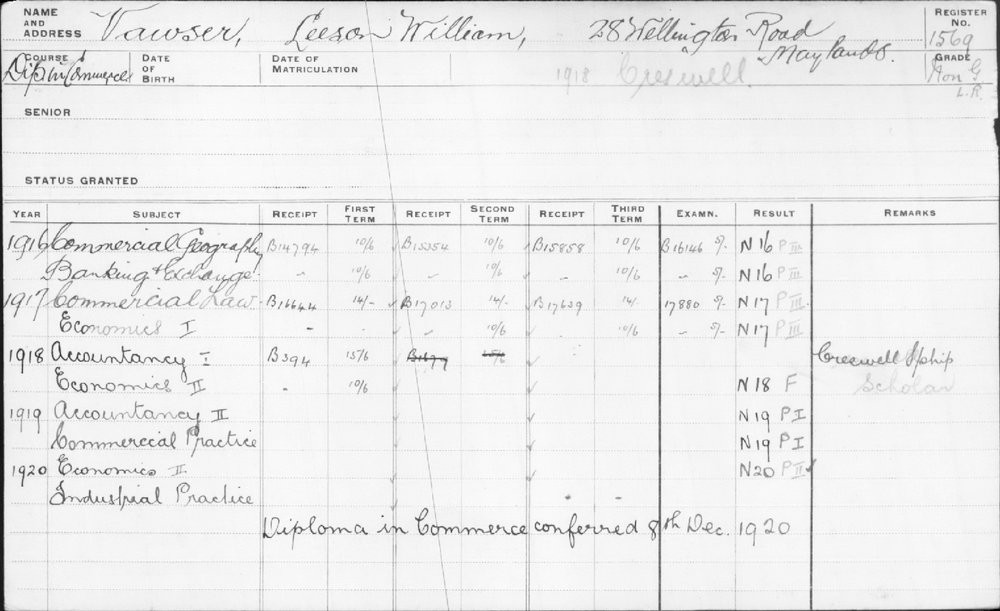 NAME AND ADDRESS Vawser, Leeson William, 28 Wellington Road Maylands. REGISTER No. 1569
COURSE Dip. in Commerce DATE OF BIRTH DATE OF MATRICULATION 1918 Creswell. GRADE Non G
L.R.
SENIOR
STATUS GRANTED
YEAR SUBJECT RECEIPT FIRST TERM RECEIPT SECOND TERM RECEIPT THIRD TERM EXAMN. RESULT REMARKS
1916 Commercial Geography B14794 10/6 B15354 10/6 B15858 10/6 B16146 5/- N 16 P III
Banking & Exchange " 10/6 " 10/6 " 10/6 " 5/- N 16 P III
1917 Commercial Law B16644 14/- B17013 14/- B17639 14/- 17880 5/- N 17 P III
Economics I " " 10/6 " 10/6 " 5/- N 17 P III
1918 Accountancy I B394 15/6 B1677 15/6 Creswell S'ship
Economics II " 10/6 N 18 F Scholar
1919 Accountancy II N 19 P I
Commercial Practice N 19 P I
1920 Economics II N 20 P II
Industrial Practice " "
Diploma in Commerce conferred 8th Dec. 1920